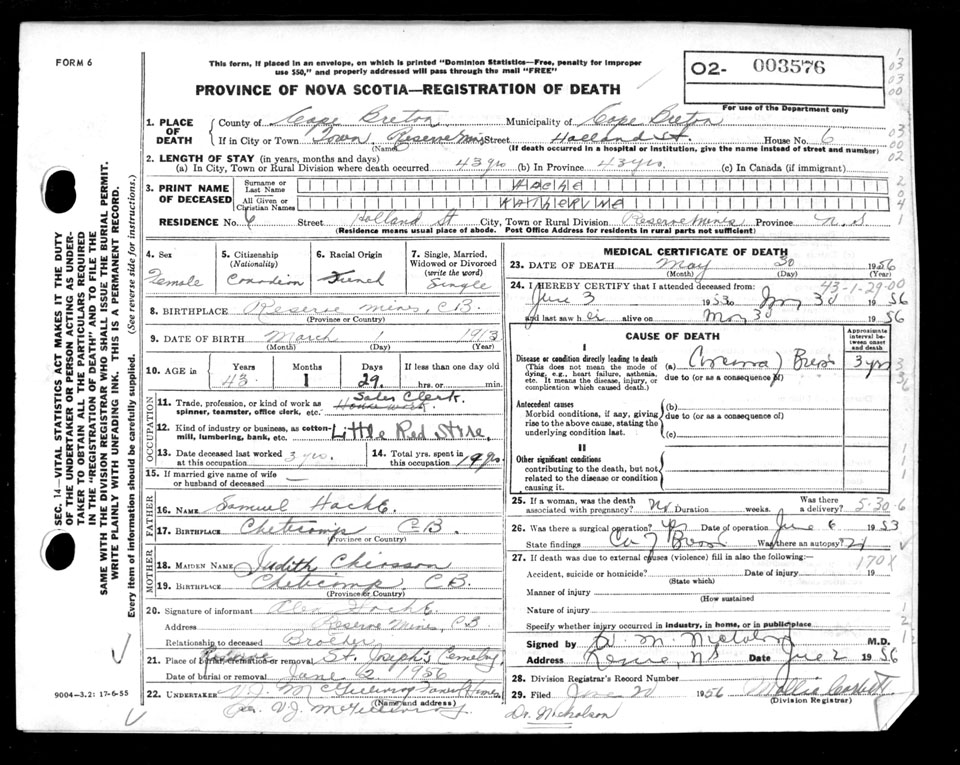 FORM 6
This form, if placed in an envelope, on which is printed "Dominion Statistics—Free, penalty for improper
use $50," and properly addressed will pass through the mail "FREE"
PROVINCE OF NOVA SCOTIA—REGISTRATION OF DEATH
02- 003576
For use of the Department only
1. PLACE OF DEATH
County of Cape Breton Municipality of Cape Breton
If in City or Town Town Reserve Mines Street Holland St. House No. 6
(Name) (If death occurred in a hospital or institution, give the name instead of street and number)
2. LENGTH OF STAY (in years, months and days)
(a) In City, Town or Rural Division where death occurred 43 yrs (b) In Province 43 yrs. (c) In Canada (if immigrant)
3. PRINT NAME OF DECEASED
Surname or Last Name HACHE
All Given or Christian Names KATHERINE
RESIDENCE No. 6 Street Holland St City, Town or Rural Division Reserve Mines Province N.S
(Residence means usual place of abode. Post Office Address for residents in rural parts not sufficient)
4. Sex Female
5. Citizenship (Nationality) Canadian
6. Racial Origin French
7. Single, Married, Widowed or Divorced (write the word) Single
8. BIRTHPLACE Reserve Mines, C.B.
(Province or Country)
9. DATE OF BIRTH March 1 1913
(Month) (Day) (Year)
10. AGE Years 43 Months 1 Days 29 If less than one day old hrs. or min.
OCCUPATION
11. Trade, profession, or kind of work as spinner, teamster, office clerk, etc. Sales Clerk.
Housework.
12. Kind of industry or business, as cotton-mill, lumbering, bank, etc. Little Red Store.
13. Date deceased last worked at this occupation 3 yrs.
14. Total yrs. spent in this occupation 19 yrs.
15. If married give name of wife or husband of deceased —
FATHER
16. NAME Samuel Hache.
17. BIRTHPLACE Cheticamp C.B.
(Province or Country)
MOTHER
18. MAIDEN NAME Judith Chiasson
19. BIRTHPLACE Cheticamp, C.B.
(Province or Country)
20. Signature of informant Alex Hache
Address Reserve Mines, C.B.
Relationship to deceased Brother
21. Place of burial, cremation or removal Reserve St. Joseph's Cemetery
Date of burial or removal June 2 1956
22. UNDERTAKER V.J. McGillivray
(Name and address)
Per. V.J. McGillivray
MEDICAL CERTIFICATE OF DEATH
23. DATE OF DEATH May 30 1956
(Month) (Day) (Year)
24. I HEREBY CERTIFY that I attended deceased from: 43-1-29-00
June 3 1953 to May 30 1956
and last saw h er alive on May 30 1956
CAUSE OF DEATH
Approximate interval between onset and death
I
Disease or condition directly leading to death
(This does not mean the mode of dying, e.g., heart failure, asthenia, etc. It means the disease, injury, or complication which caused death.)
(a) Breast 3 yrs
due to (or as a consequence of)
Antecedent causes
Morbid conditions, if any, giving rise to the above cause, stating the underlying condition last.
(b)
due to (or as a consequence of)
(c)
II
Other significant conditions
contributing to the death, but not related to the disease or condition causing it.
25. If a woman, was the death associated with pregnancy? No Duration weeks. Was there a delivery? 5-30-6
26. Was there a surgical operation? Yes Date of operation June 6 1953
State findings Ca of Breast Was there an autopsy?
27. If death was due to external causes (violence) fill in also the following:— 170X
Accident, suicide or homicide? Date of injury 19
(State which)
Manner of injury
(How sustained
Nature of injury
Specify whether injury occurred in industry, in home, or in public place
Signed by M.D.
Address Reserve, N.S Date June 2 1956
28. Division Registrar's Record Number
29. Filed June 20 1956 Mollie
(Division Registrar)
Dr. Nicholson
SEC. 14—VITAL STATISTICS ACT MAKES IT THE DUTY
OF THE UNDERTAKER OR PERSON ACTING AS UNDER-
TAKER TO OBTAIN ALL THE PARTICULARS REQUIRED
IN THE "REGISTRATION OF DEATH" AND TO FILE THE
SAME WITH THE DIVISION REGISTRAR WHO SHALL ISSUE THE BURIAL PERMIT.
WRITE PLAINLY WITH UNFADING INK. THIS IS A PERMANENT RECORD.
Every item of information should be carefully supplied. (See reverse side for instructions.)
9004-3.2: 17-6-55